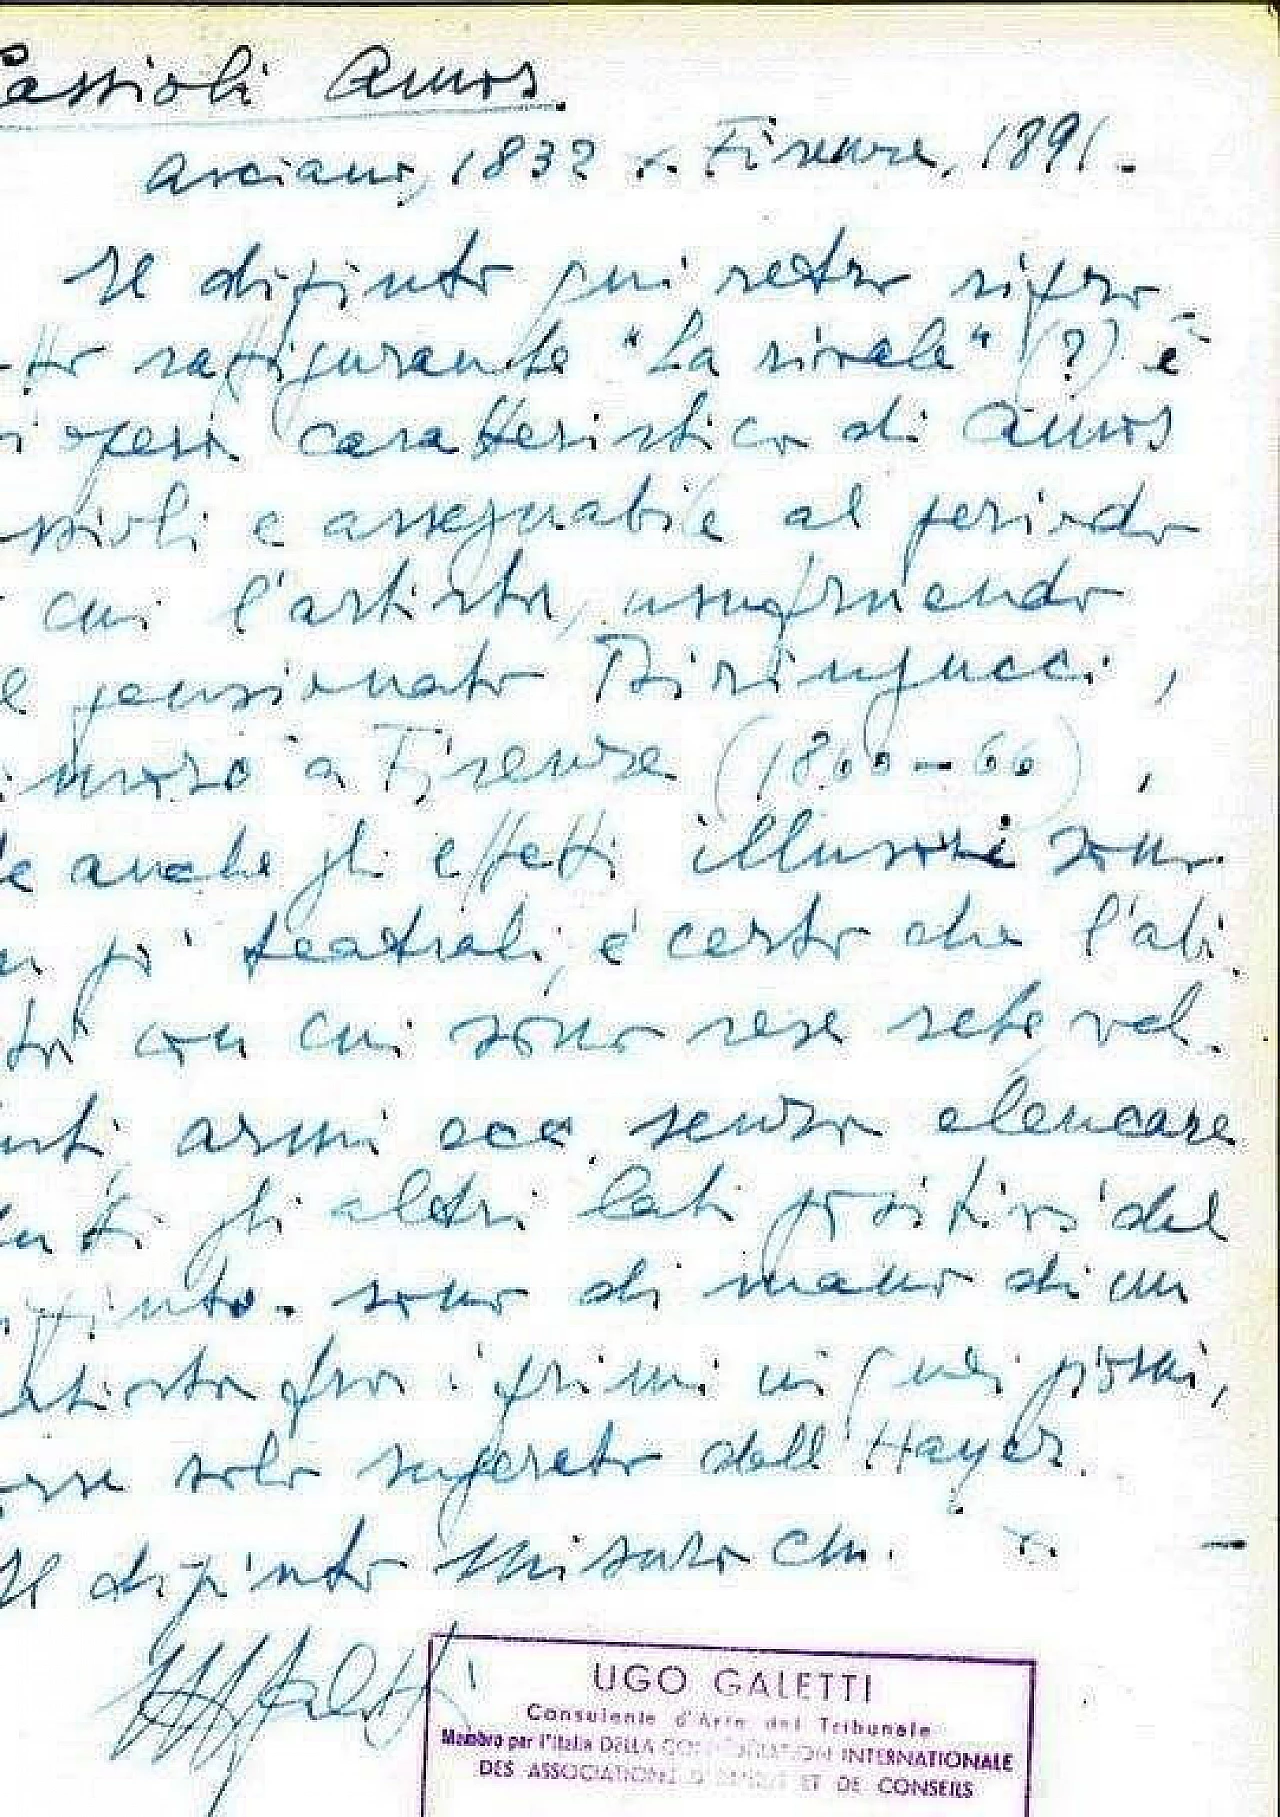 Cassioli Amos.
Asciano, 1832 - Firenze, 1891.
Il dipinto qui retro ripro-
tto raffigurante "La rivale" (?) è
opera caratteristica di Amos
ssioli e assegnabile al periodo
cui l'artista, usufruendo
l pensionato Biringucci,
morò a Firenze (1860-66),
e anche gli effetti illusori sono
un pò teatrali, è certo che l'abi-
tà con cui sono rese sete vel-
uti armi ecc. senza elencare
tutti gli altri lati positivi del
ipinto - sono di mano di un
artista fra i primi in quei giorni,
orse solo superato dall'Hayez.
Il dipinto misura cm. -
UGO GALETTI
Consulente d'Arte del Tribunale
Membro per l'Italia DELLA INTERNATIONALE
DES ASSOCIATIONS ET DE CONSEILS